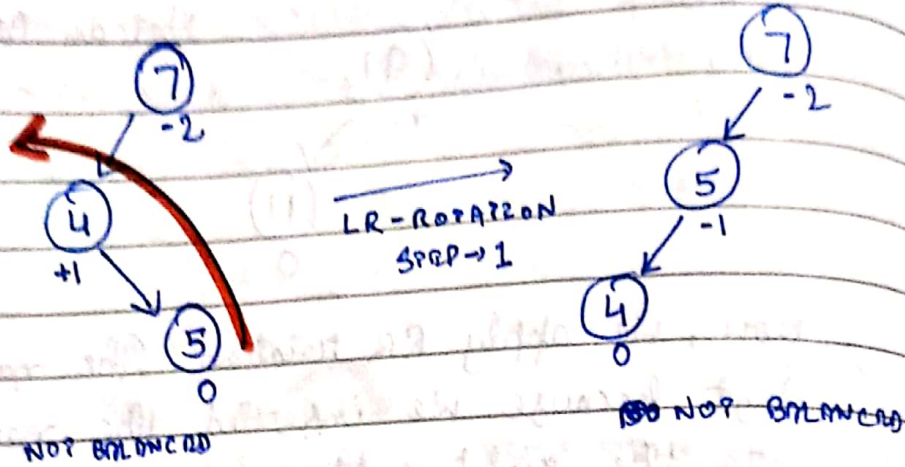 7
-2
4
+1
5
0
NOT BALANCED
LR-ROTATION
STEP→1
7
-2
5
-1
4
0
NOT BALANCED